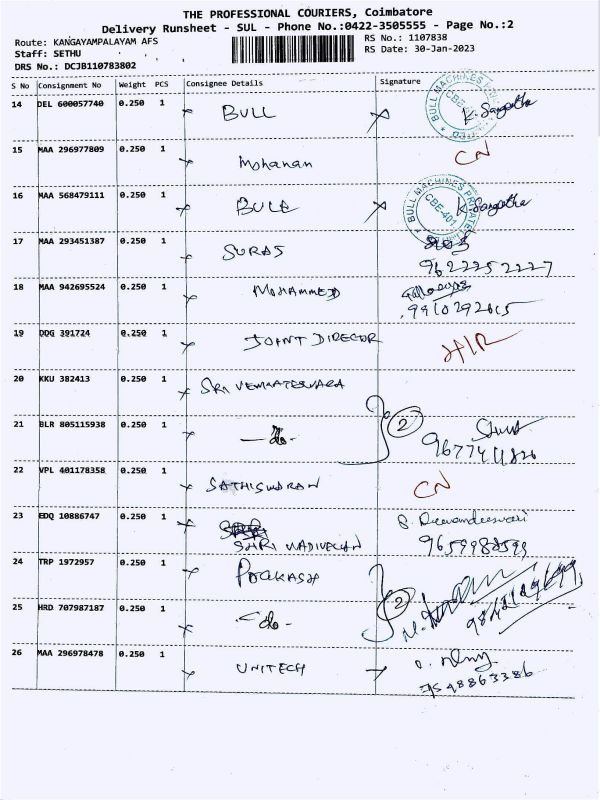 THE PROFESSIONAL COURIERS, Coimbatore
Delivery Runsheet - SUL - Phone No.:0422-3505555 - Page No.:2
Route: KANGAYAMPALAYAM AFS
RS No.: 1107838
Staff: SETHU
RS Date: 30-Jan-2023
DRS No.: DCJB110783802
S No Consignment No Weight PCS Consignee Details Signature
14 DEL 600057740 0.250 1 BULL K. Sangatha
BULL MACHINES
15 MAA 296977809 0.250 1 Mohanan CN
16 MAA 568479111 0.250 1 BULL K. Sangatha
BULL MACHINES PRIVATE LIMITED
CBE-401
17 MAA 293451387 0.250 1 SURAS
9622252227
18 MAA 942695524 0.250 1 MOHAMMED
9910292015
19 DDG 391724 0.250 1 JOINT DIRECTOR HIR
20 KKU 382413 0.250 1 SRI VENKATESWARA
21 BLR 805115938 0.250 1 -do- 2
22 VPL 401178358 0.250 1 SATHISWARAN CN
23 EDQ 10886747 0.250 1
SHRI VADIVELAN
24 TRP 1972957 0.250 1 PRAKASH
25 HRD 707987187 0.250 1 -do- 2
26 MAA 296978478 0.250 1 UNITECH
7548863386